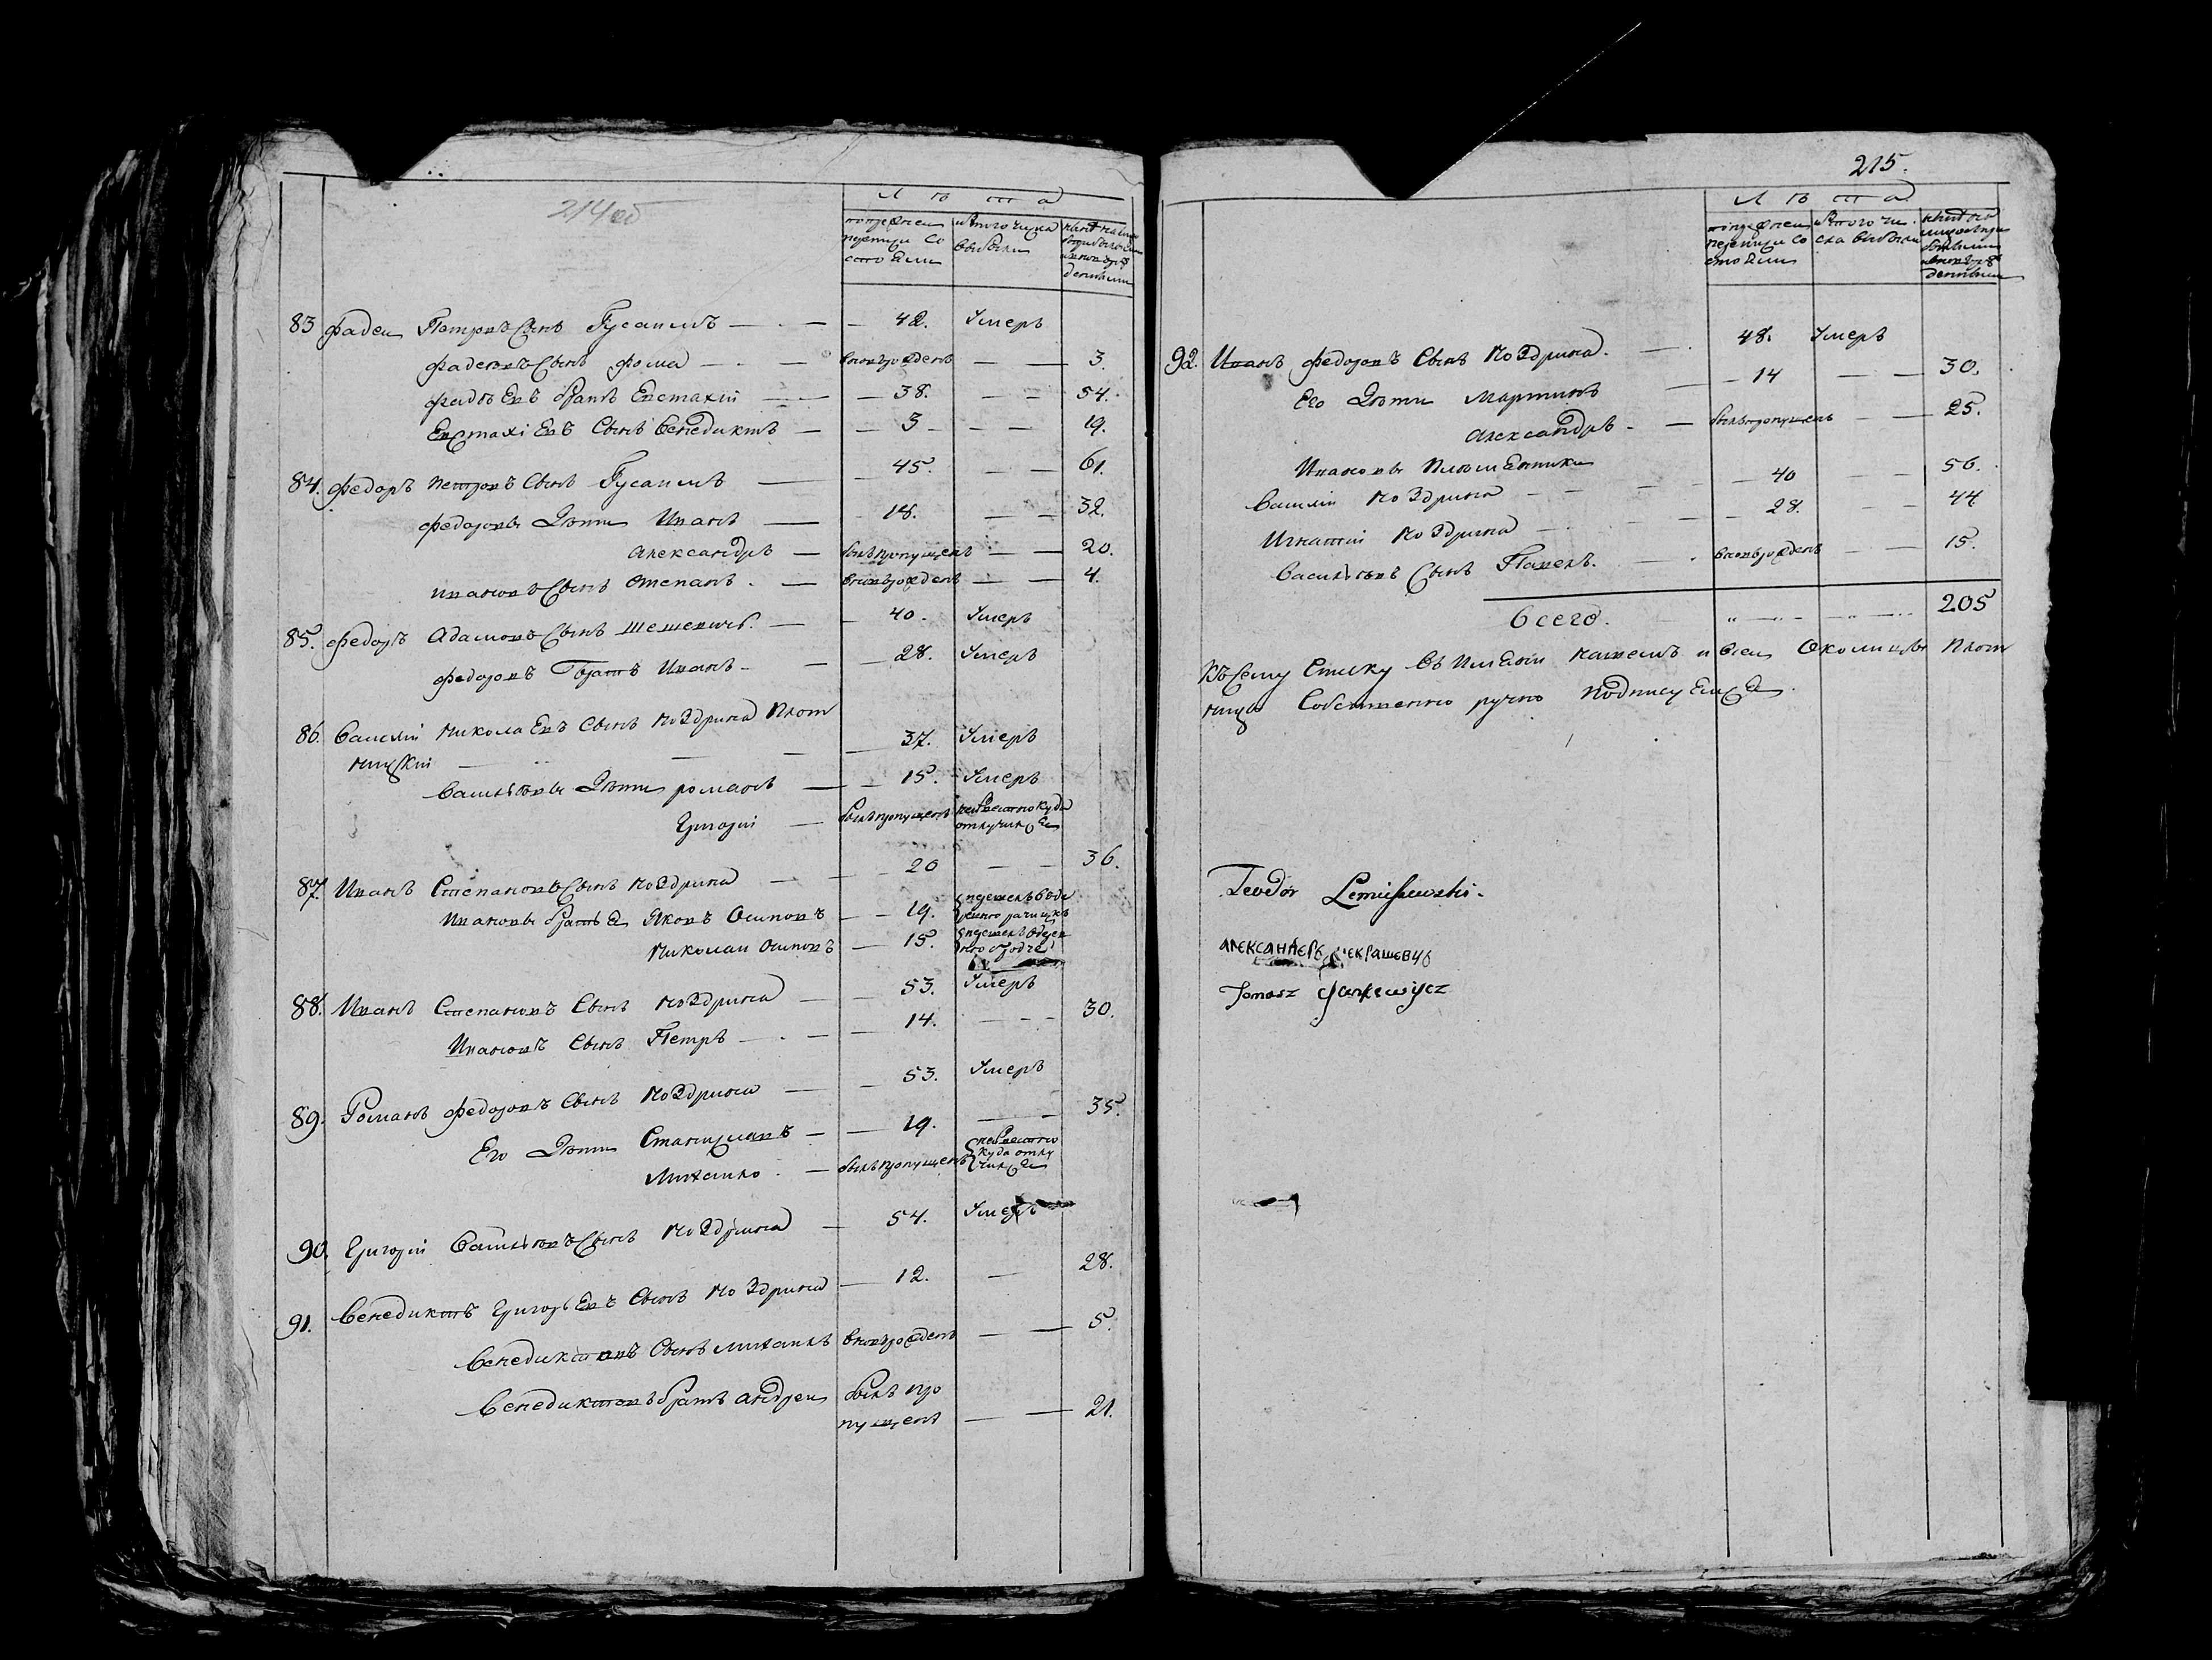 214 об
Лѣта
по прежней
ревизіи со
стояли
изъ того числа
выбыли
83 Фадей Петровъ Сынъ Гусаимъ 42. Умеръ
Фадеевъ Сынъ Фома вновьрожденъ 3.
Фадѣевъ братъ Евстахій 38. 54.
Евстахіевъ Сынъ Венедиктъ 3 19.
84. Федоръ Петровъ Сынъ Гусаимъ 45. 61.
Федоровы Дѣти Иванъ 18. 32.
Александръ былъ пропущенъ 20.
Ивановъ Сынъ Степанъ. вновьрожденъ 4.
85. Федоръ Адамовъ Сынъ 40. Умеръ
Федоровъ братъ Иванъ 28. Умеръ
86. Василій Николаевъ Сынъ Ноздрина Плот
ницкій 37. Умеръ
Васильевы Дѣти Романъ 15. Умеръ
Григорій былъ пропущенъ неизвестно куда
отлучился
87. Иванъ Степановъ Сынъ Ноздрина 20 36.
Ивановы братья Яковъ Осиповъ 19.
Николай Осиповъ 15.
88. Иванъ Степановъ Сынъ Ноздрина 53. Умеръ
Ивановъ Сынъ Петръ 14. 30.
89. Романъ Федоровъ Сынъ Ноздрина 53. Умеръ
Его Дѣти Станиславъ 19. 35.
Михайло былъ пропущенъ неизвестно
куда отлу
чился
90. Григорій Васильевъ Сынъ Ноздрина 54. Умеръ
91. Венедиктъ Григорьевъ Сынъ Ноздрина 12. 28.
Венедиктовъ Сынъ Михаилъ вновьрожденъ 5.
Венедиктовъ братъ Андрей былъ про
пущенъ 21.
215.
Лѣта
по прежней
ревизіи со
стояли
изъ того чи
сла выбыли
92. Иванъ Федоровъ Сынъ Ноздрина. 48. Умеръ
Его Дѣти Мартинъ 14 30.
Александръ былъ пропущенъ 25.
Ивановы Племенники
Василій Ноздрина 40 56.
Игнатій Ноздрина 28. 44
Васильевъ Сынъ Павелъ. вновьрожденъ 15.
Всего. 205
Въ Сему Списку въ имѣніи нашемъ и всей Околицы Плот
ницы Собственно ручно подписуемся.
Teodor Lemiszewski.
АЛЕКСАНДЕРЪ
Tomasz